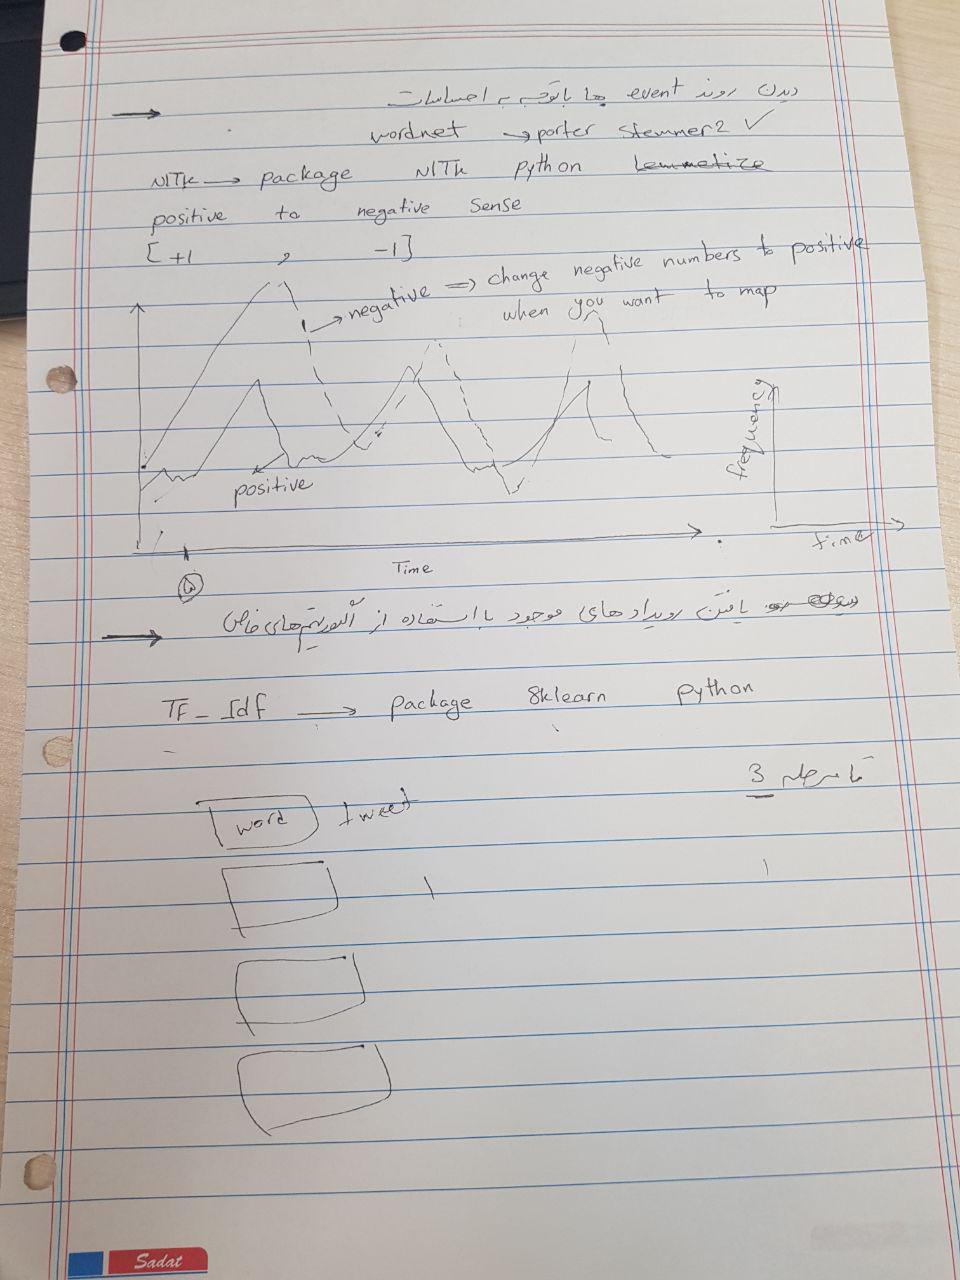 دیدن روند event ها با توجه به احساسات
wordnet → porter stemmer2 ✓
NlTK → package NlTK python Lemmetize
positive to negative Sense
[+1 , -1]
negative ⇒ change negative numbers to positive
when you want to map
positive
frequency
Time
time
یافتن رویدادهای موجود با استفاده از الگوریتم‌های خاص
TF_Idf → package Sklearn python
تا مرحله 3
word tweet
Sadat